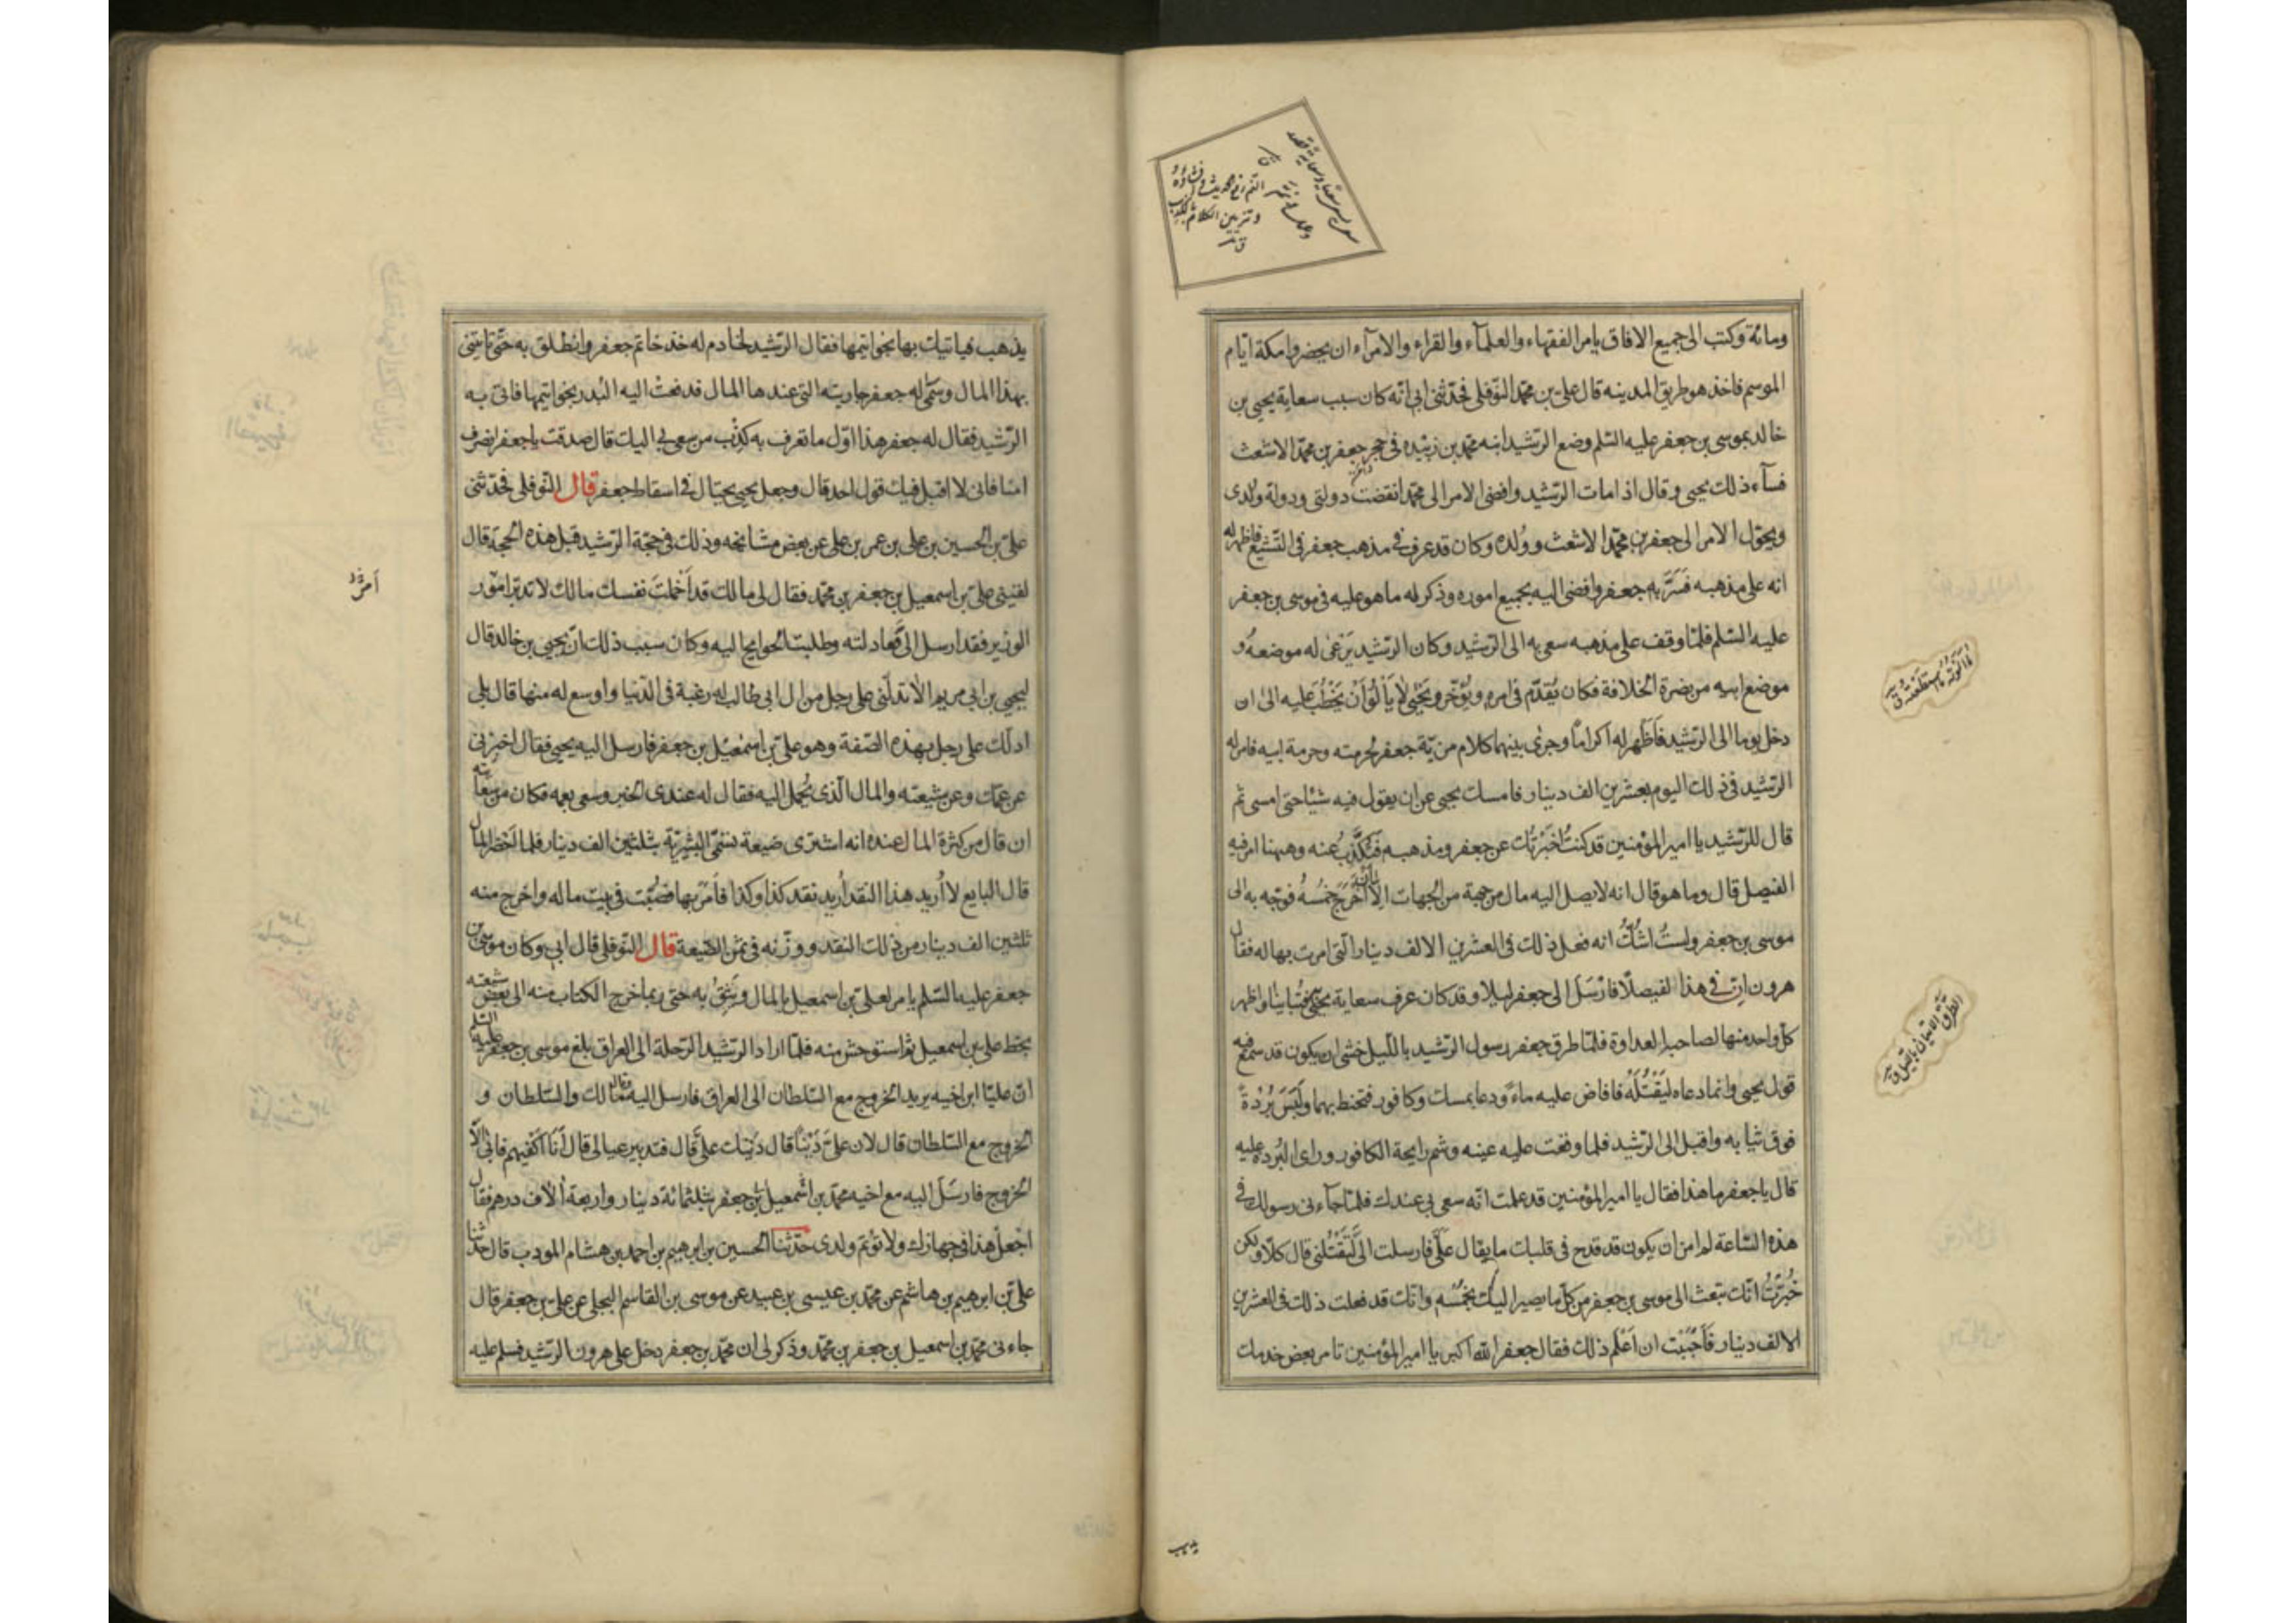 ومائة وكتب الى جميع الافاق يامر الفقهاء والعلمآء والقراء والامرآء ان يحضروا مكة ايام
الموسم فاخذ هو طريق المدينه قال على بن محمّد النّوفلى فحدّثنى ابى انّه كان سبب سعاية يحيى بن
خالد بموسى بن جعفر عليه السّلم وضع الرّشيد ابنه محمّد بن زبيده فى حجر جعفر بن محمّد الاشعث
فسآء ذلك يحيى وقال اذا مات الرّشيد وافضى الامر الى محمّد انقضت دولتى ودولة ولدى
ويحوّل الامر الى جعفر بن محمّد الاشعث وولده وكان قد عرف فى مذهب جعفر فى التّشيّع فاظهر له
انه على مذهبه فسرّ به جعفر وافضى اليه بجميع اموره وذكر له ما هو عليه فى موسى بن جعفر
عليه السّلم فلمّا وقف على مذهبه سعى به الى الرّشيد وكان الرّشيد يرعى له موضعه و
موضع ابيه من نصرة الخلافة فكان يقدّم فى امره ويؤخّر ويحيى لا يألو أن يخطب عليه الى ان
دخل يوما الى الرّشيد فأظهر له اكراما وجرى بينهما كلام من يّة جعفر لحرمته وحرمة ابيه فامر له
الرّشيد فى ذلك اليوم بعشرين الف دينار فامسك يحيى عن ان يقول فيه شيئا حتى امسى ثم
قال للرّشيد يا امير المؤمنين قد كنت اخبرتك عن جعفر ومذهبه فتكذّب عنه وههنا امر فيه
الفيصل قال وما هو قال انه لا يصل اليه مال من جهة من الجهات الا أخرج خمسه فوجّه به الى
موسى بن جعفر ولست اشكّ انه فعل ذلك فى العشرين الالف دينار الّتى امرت بها له فقال
هرون ان فى هذا لفيصلا فارسل الى جعفر ليلا وقد كان عرف سعاية يحيى به فتباينا واظهر
كل واحد منها لصاحبه العداوة فلمّا طرق جعفر رسول الرّشيد باللّيل خشى ان يكون قد سمع فيه
قول يحيى وانما دعاه ليقتله فافاض عليه ماء ودعا بمسك وكافور فتحنط بهما ولبس بردة
فوق ثيابه واقبل الى الرّشيد فلما وقعت عليه عينه وشم رايحة الكافور وراى البردة عليه
قال يا جعفر ما هذا فقال يا امير المؤمنين قد علمت انّه سعى بى عندك فلمّا جآءنى رسولك فى
هذه السّاعة لم امن ان يكون قد قدح فى قلبك ما يقال علىّ فارسلت الىّ لتقتلنى قال كلّا ولكن
خبّرت انّك تبعث الى موسى بن جعفر من كلّ ما يصير اليك بخمسه وانّك قد فعلت ذلك فى العشرين
الالف دينار فأحببت ان اعلم ذلك فقال جعفر الله اكبر يا امير المؤمنين تامر بعض خدمك
يذهب
يذهب فياتيك بها بخواتيمها فقال الرّشيد لخادم له خذ خاتم جعفر وانطلق به حتّى تاتينى
بهذا المال وسمّى له جعفر جاريته التى عندها المال فدفعت اليه البدر بخواتيمها فاتى به
الرّشيد فقال له جعفر هذا اوّل ما تعرف به كذب من سعى بى اليك قال صدقت يا جعفر انصرف
امنا فانى لا اقبل فيك قول احد قال وجعل يحيى يحتال فى اسقاط جعفر قال النّوفلى فحدّثنى
علىّ بن الحسين بن على بن عمر بن على عن بعض مشائخه وذلك فى حجّة الرّشيد قبل هذه الحجّة قال
لقينى على بن اسمعيل بن جعفر بن محمّد فقال لى مالك قد أخملت نفسك مالك لا تدبّر امور
أمر
الوزير فقد ارسل الىّ فعادلته وطلبت الحوايج اليه وكان سبب ذلك انّ يحيى بن خالد قال
ليحيى بن ابى مريم الا تدلّنى على رجل من ال ابى طالب له رغبة فى الدّنيا واوسع له منها قال بلى
ادلّك على رجل بهذه الصّفة وهو علىّ بن اسمعيل بن جعفر فارسل اليه يحيى فقال اخبرنى
عن عمّك وعن شيعته والمال الّذى يحمل اليه فقال له عندى الخبر وسعى بعمه فكان من سعايته
ان قال من كثرة المال عنده انه اشترى ضيعة تسمّى البشريّة بثلثين الف دينار فلما أحضر المال
قال البايع لا اريد هذا النقد اريد نقد كذا وكذا فأمر بها فصبّت فى بيت ماله واخرج منه
ثلثين الف دينار من ذلك النقد ووزنه فى ثمن الضّيعة قال النّوفلى قال ابى وكان موسى بن
جعفر عليه السّلم يامر لعلىّ بن اسمعيل بالمال ويثق به حتى ربما خرج الكتاب منه الى بعض شيعته
بخط على بن اسمعيل ثم استوحش منه فلمّا اراد الرّشيد الرّحلة الى العراق بلغ موسى بن جعفر عليه السّلم
انّ عليّا ابن اخيه يريد الخروج مع السّلطان الى العراق فارسل اليه فقال مالك والسّلطان و
الخروج مع السّلطان قال لان علىّ ديناً قال دينك علىّ قال فتدبير عيالى قال أنا اكفيهم فابى الّا
الخروج فارسل اليه مع اخيه محمّد بن اسمعيل بن جعفر بثلثمائة دينار واربعة الاف درهم فقال
اجعل هذا فى جهازك ولا تؤتم ولدى حدّثنا الحسين بن ابرهيم بن احمد بن هشام المودب قال حدّثنا
علىّ بن ابرهيم بن هاشم عن محمّد بن عيسى بن عبيد عن موسى بن القاسم البجلى عن على بن جعفر قال
جاءنى محمّد بن اسمعيل بن جعفر بن محمّد وذكر لى ان محمّد بن جعفر دخل على هرون الرّشيد فسلم عليه